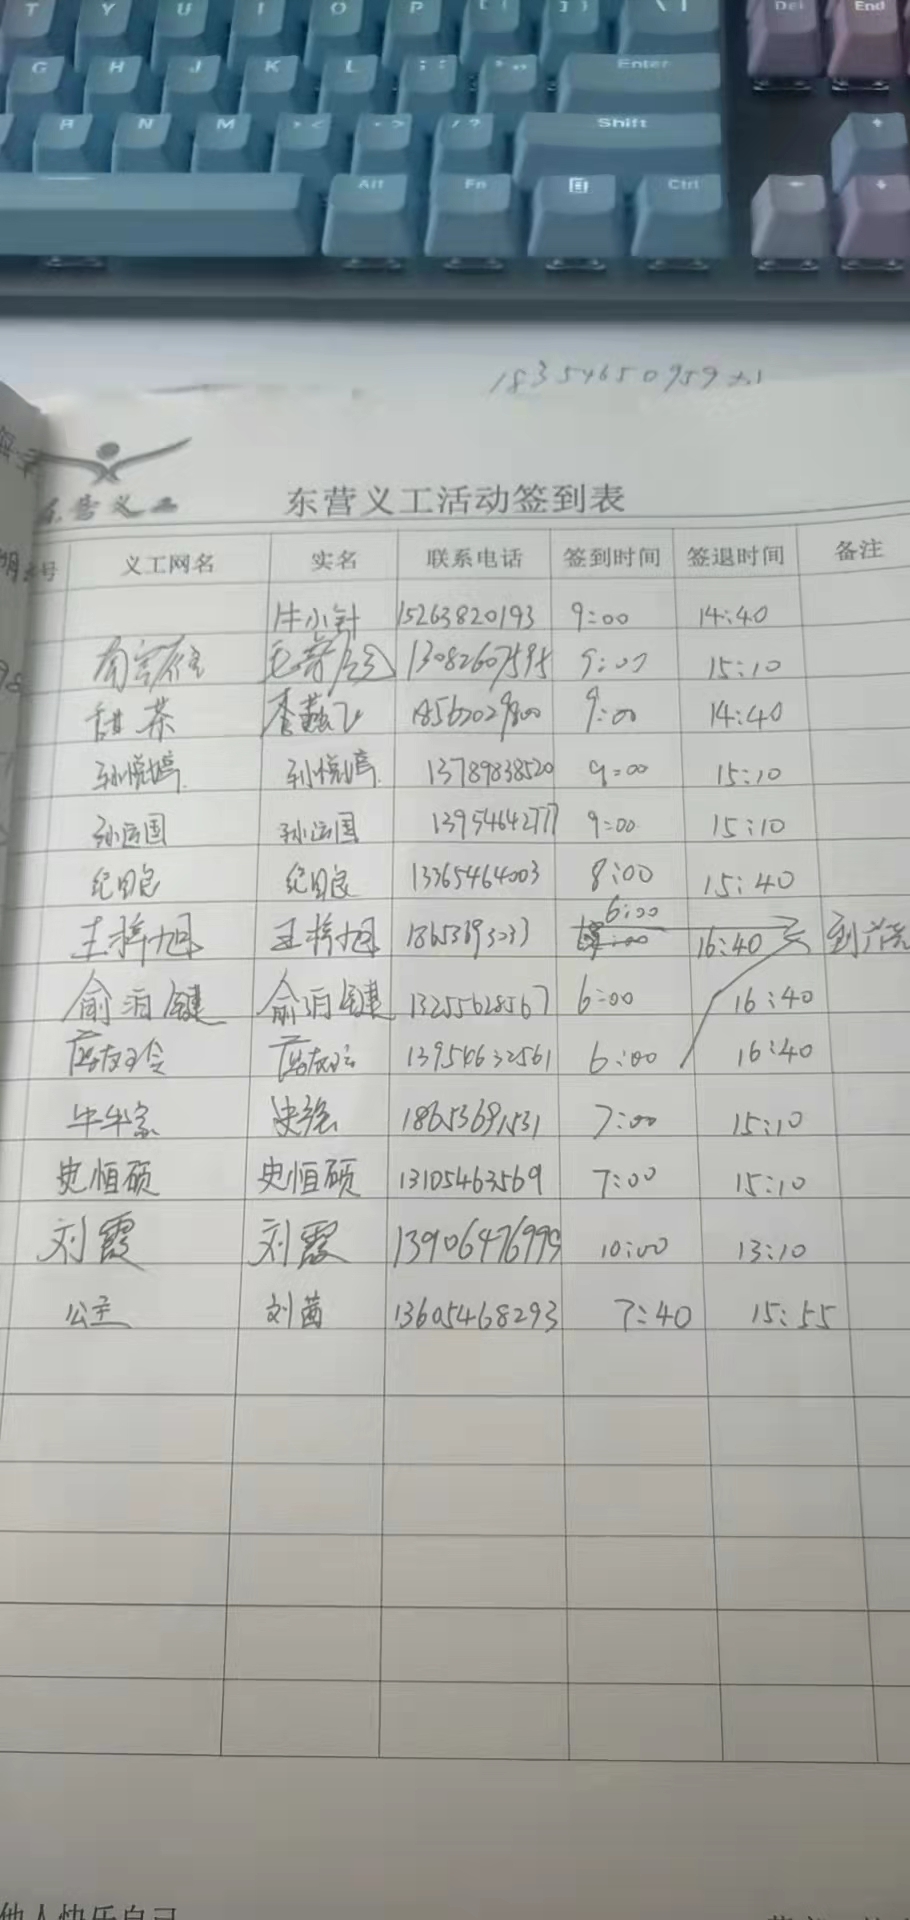 T Y U I O P [ { ] } \ | Del End
G H J K L ; : " Enter
B N M < > / ? Shift
Alt Fn Ctrl
18354650959
东营义工
东营义工活动签到表
义工网名 实名 联系电话 签到时间 签退时间 备注
牛小针 15263820193 9:00 14:40
13082607595 9:00 15:10
甜茶 李 18562029800 9:00 14:40
孙悦婷 孙悦婷 13789838520 9:00 15:10
孙运国 孙运国 13954642777 9:00 15:10
纪国良 纪国良 13365464003 8:00 15:40
王梓旭 王梓旭 18653693033 6:00 16:40 到
俞泊键 俞泊键 13255628567 6:00 16:40
13954632561 6:00 16:40
牛牛家 史强 18653691531 7:00 15:10
史恒硕 史恒硕 13105463569 7:00 15:10
刘霞 刘霞 13906476999 10:00 13:10
公主 刘茜 13605468293 7:40 15:55
他人快乐自己